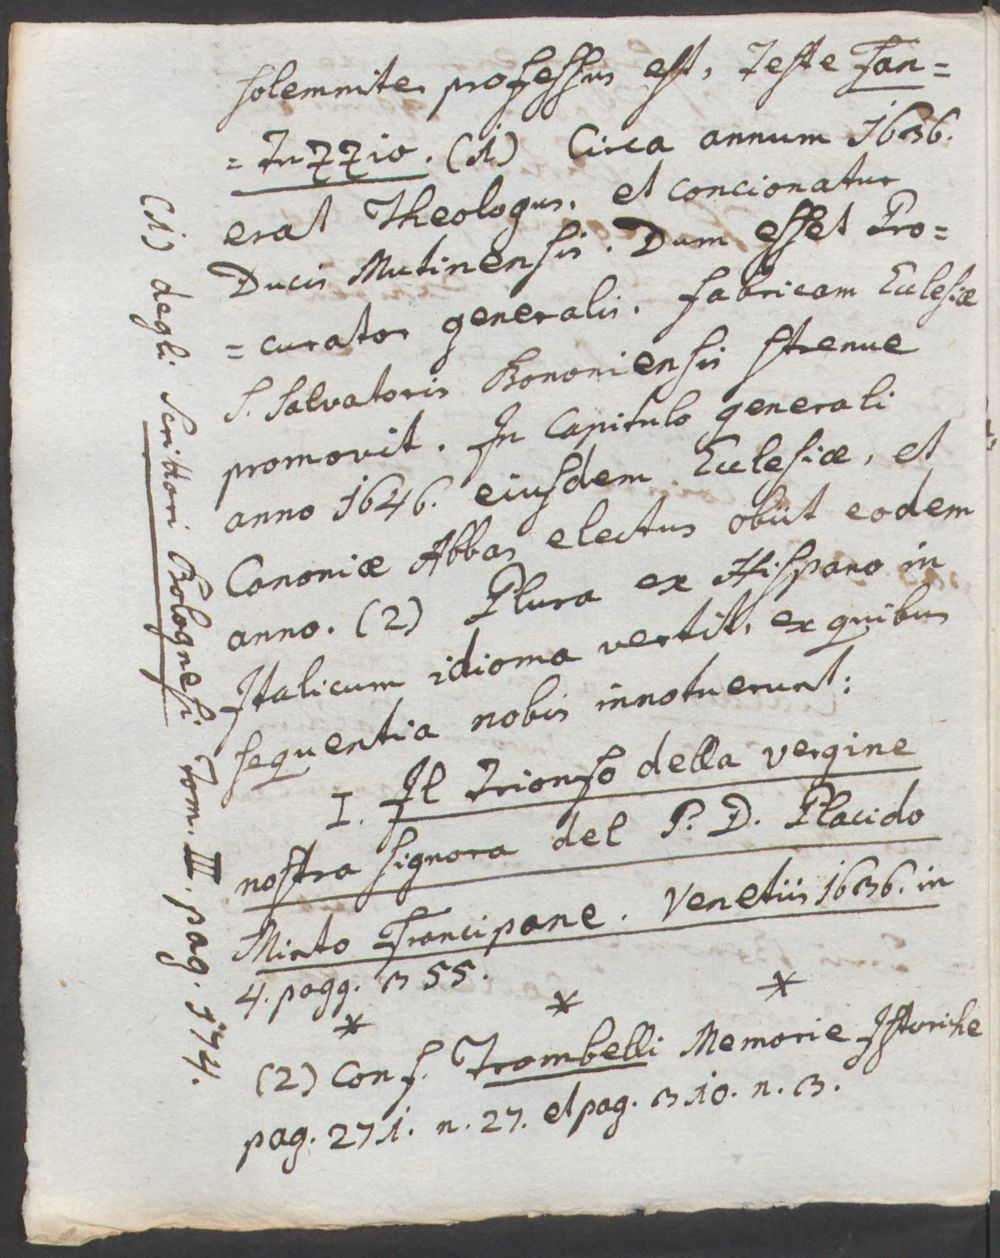 solemniter professus est, Teste Fan=
=tuzzio. (1) Circa annum 1636.
erat Theologus, et concionator
Ducis Mutinensis. Dum esset Pro=
=curator generalis, fabricam Eclesiæ
S. Salvatoris Bononiensis strenue
promovit. In Capitulo generali
anno 1646. eiusdem Ecclesiæ, et
Canoniæ Abbas electus obiit eodem
anno. (2) Plura ex Hispano in
Italicum idioma vertit, ex quibus
sequentia nobis innotuerunt:
I. Il Trionfo della vergine
nostra signora del P. D. Placido
Mirto Francipane. Venetiis 1636. in
4. pagg. 355.
* * *
(2) Conf. Trombelli Memorie Istoriche
pag. 271. n. 27. et pag. 310. n. 3.
(1) degli Scrittori Bolognesi Tom. III. pag. 174.